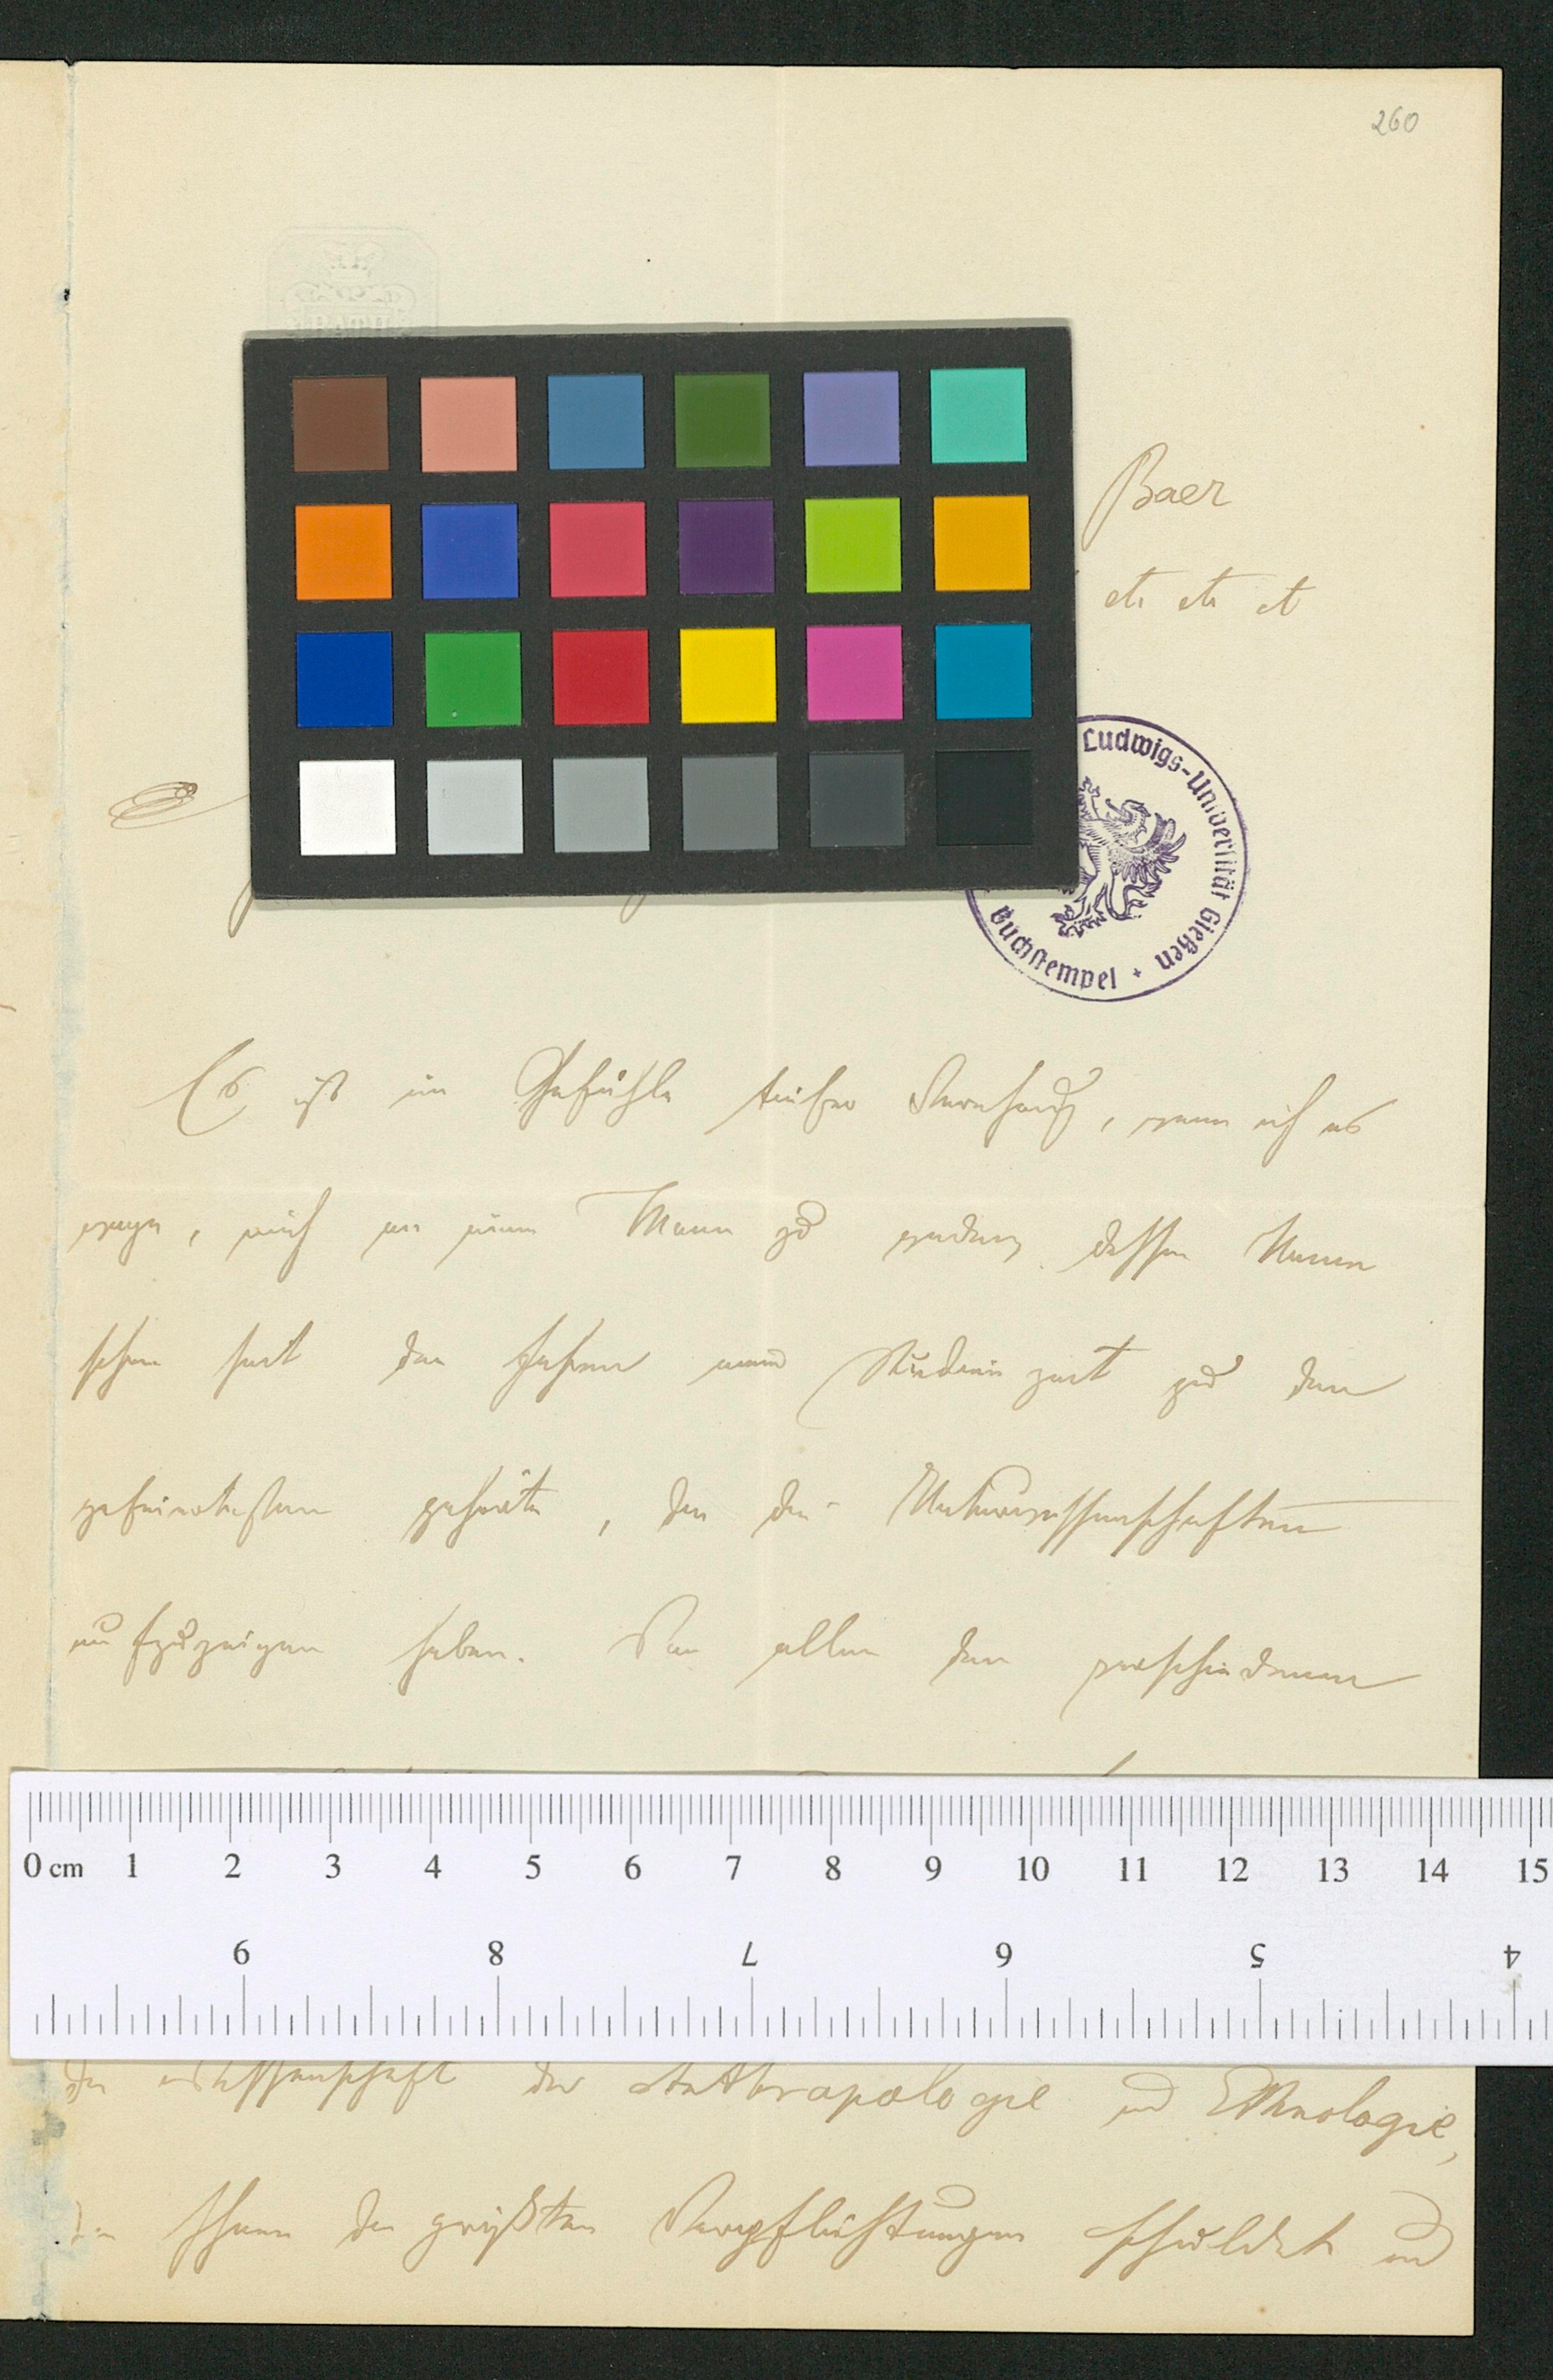 260
Baer
etc etc etc
Ludwigs-Universität Gießen
Buchstempel
Es ist im Gefühle tiefer Verehrung, wenn ich es
wage, mich an einen Mann zu wenden dessen Namen
schon seit den Jahren meiner Studienzeit zu den
gefeiertesten gehörte, den die Naturwissenschaften
aufzuzeigen haben. Von allen den verschiedenen
0 cm 1 2 3 4 5 6 7 8 9 10 11 12 13 14 15
9 8 7 6 5 4
die Wissenschaft der Anthropologie und Ethnologie,
die Ihnen die größten Verpflichtungen schuldet und